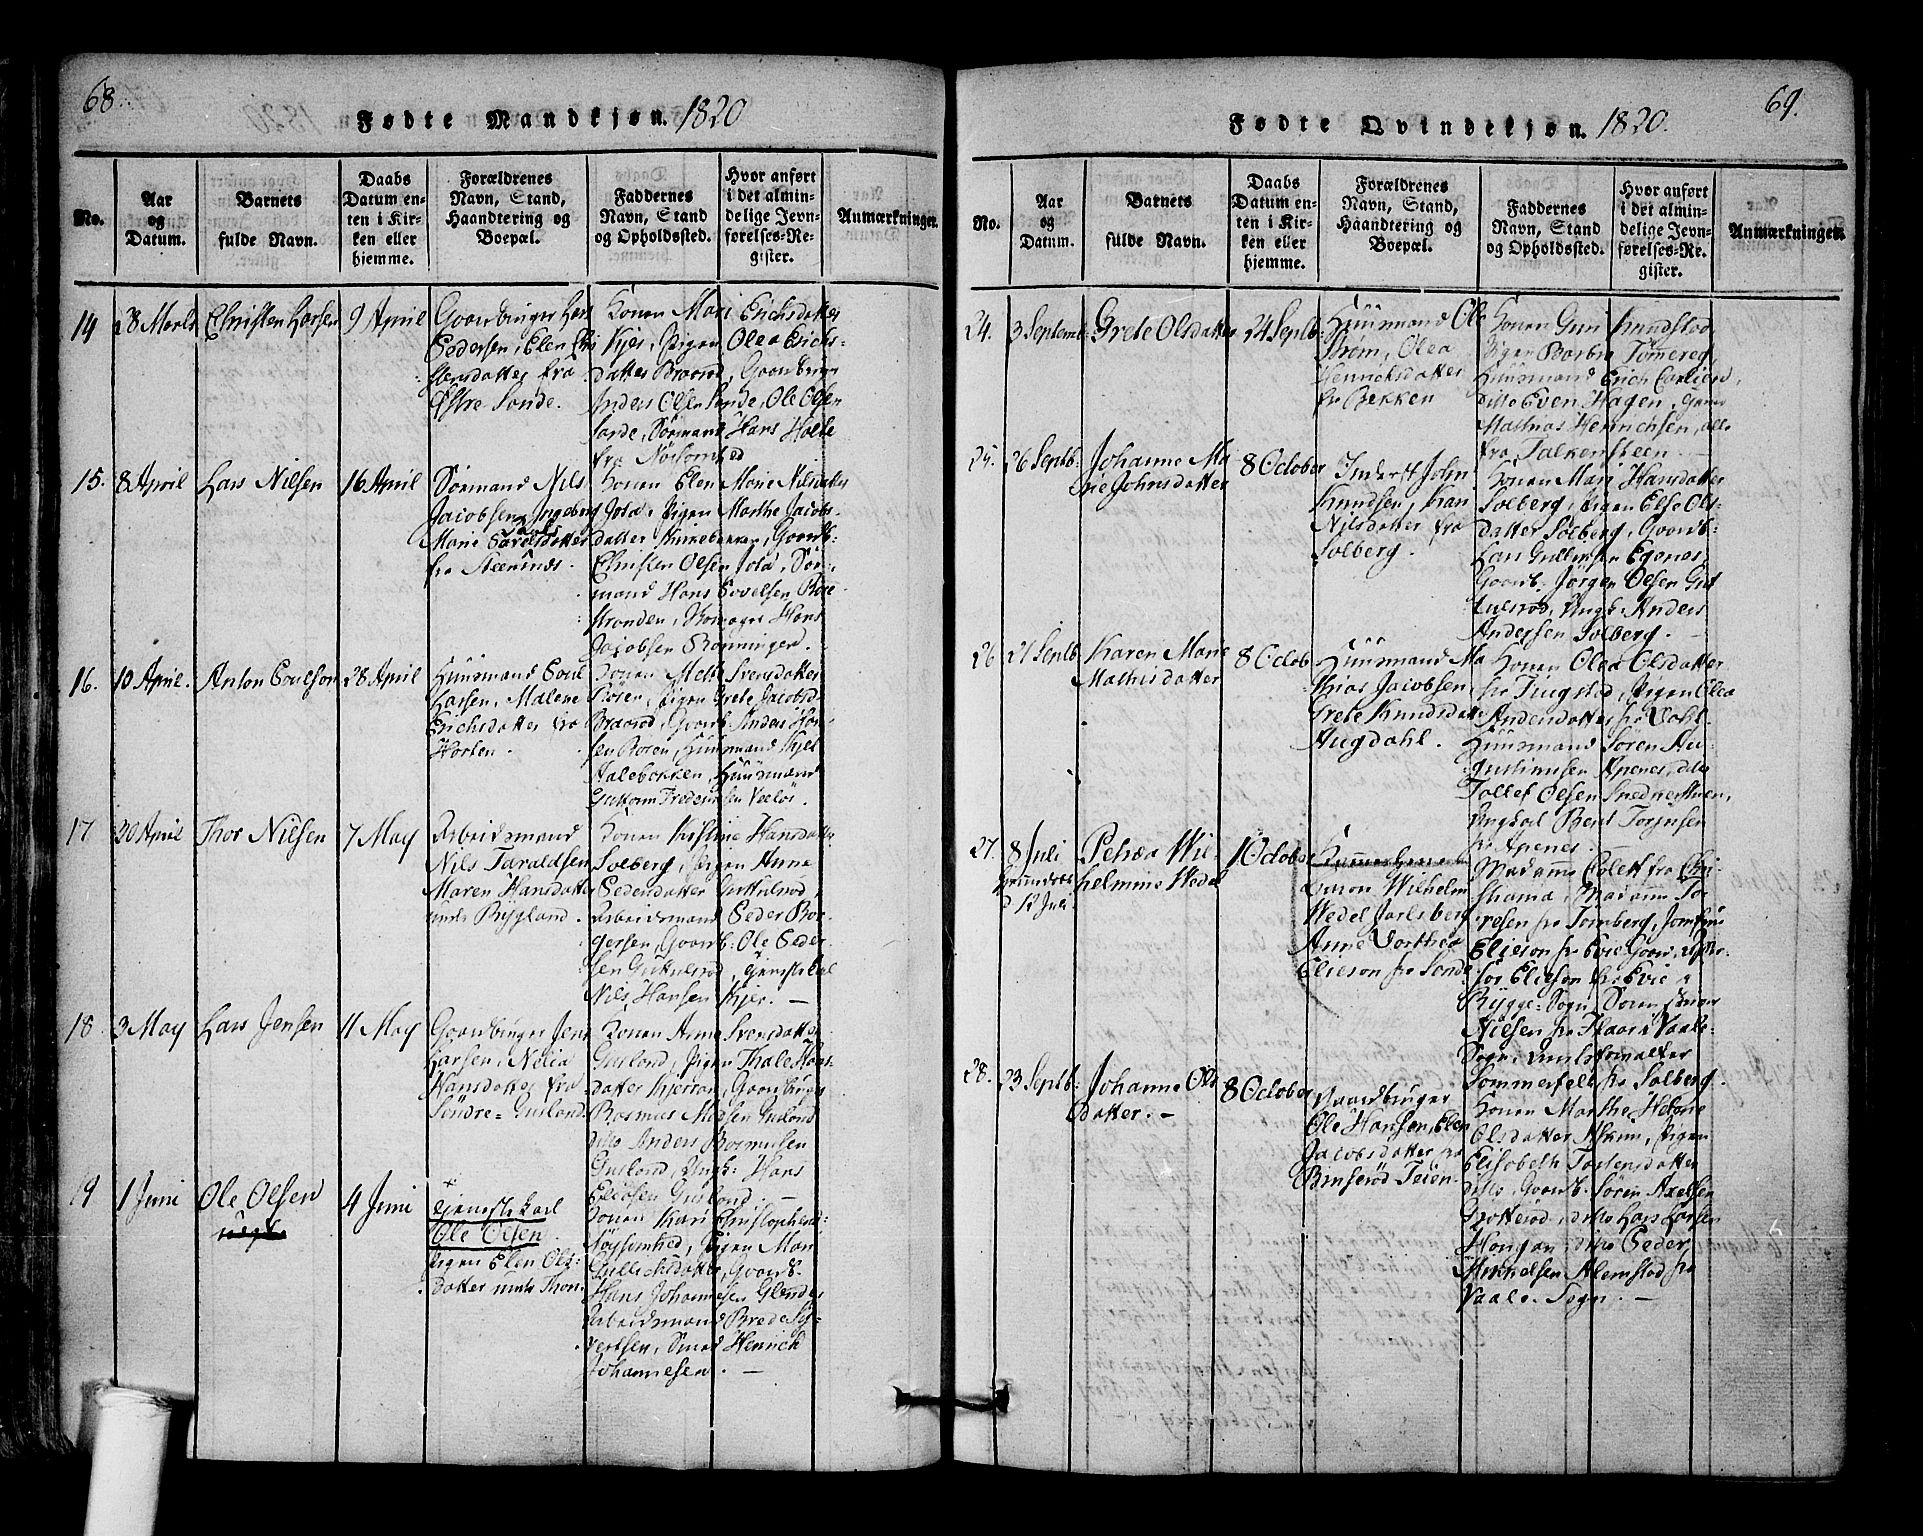 68
Fødte Mandkjøn. 1820
No.
Aar
og
Datum.
Barnets
fulde Navn.
Daabs
Datum en-
ten i Kir-
ken eller
hjemme.
Forældrenes
Navn, Stand,
Haandtering og
Boepæl.
Faddernes
Navn, Stand
og Opholdssted.
Hvor anført
i det almin-
delige Jevn-
førelses-Re-
gister.
Anmærkninger.
14
28 Marts
Christen Larsen
9 April
Gaardbruger Lars
Pedersen, Elen Chri
stensdatter fra
Østre Sande.
Konen Mari Erichsdatter
Kjær, Pigen Olea Erichs-
datter Braarød, Gaardbruger
Anders Olsen Sande, Ole Olsen
Sande, Sørmand Hans Holte
fra Nøisomhed
15.
8 April
Lars Nilsen
16 April
Sørmand Nils
Jacobsen, Ingeborg
Marie Larsdatter
fra Steensnds.
Konen Elen Marie Nilsdatter
Pigen Marthe Jacobs-
datter Kinnebakken, Gaardb:
Christen Olsen Sør-
mand Hans Povelsen Bær-
stranden, Hans
Jacobsen Rønningen.
16.
10 April.
Anton Povelsen
28 April
Huusmand Povel
Larsen, Malene
Erichsdatter fra
Horten.
Konen Mette Svensdatter
Pigen Grete Jacobsd
Braarød, Gaardb: Anders Han-
sen Huusmand Kjel
Halebakken, Huusmand
Guttorm Fredrichsen Veeløs.
17
30 April
Thor Nilsen
7 May
Arbeidsmand
Nils Taraldsen
Maren Hansdatter
under Rygland.
Konen Kistine Hansdatter
Solberg, Pigen Anne
Pedersdatter Guttulsrød,
Arbeidsmand Peder Bør-
gersen, Gaardb: Ole Peder-
sen Guttulsrød, Tjenstekarl
Nils Hansen Kjær. —
18
3 May
Lars Jensen
11 May
Gaardbruger Jens
Larsen, Nelia
Hansdatter fra
Søndre-Gusland.
Konen Anne Svensdatter
Gusland, Pigen Thale Hans-
datter Kjerran, Gaardbruger
Rasmus Madsen Gusland
ditto Anders Rasmusen
Gusland, Ungk: Hans
Eliasen Gusland. —
19
1 Juni
Ole Olsen
4 Juni
+
Tjenstekarl
Ole Olsen.
Pigen Elen Ols-
datter under Thon.
Konen Kari Christophersd:
Nøysomhed, Pigen Mari
Gullichsdatter, Gaardb:
Hans Johannesen Glende,
Arbeidsmand Brede Sy-
vertsen, Smed Henrich
Johannesen. —
69.
Fødte Qvindekjøn. 1820.
No.
Aar
og
Datum.
Barnets
fulde Navn.
Daabs
Datum en-
ten i Kir-
ken eller
hjemme.
Forældrenes
Navn, Stand,
Haandtering og
Boepæl.
Faddernes
Navn, Stand
og Opholdssted.
Hvor anført
i det almin-
delige Jevn-
førelses-Re-
gister.
Anmærkninger.
24.
3 Septemb
Grete Olsdatter
24 Septb:
Huusmand Ole
Strøm, Olea
Henrichsdatter
fr Bekken
Konen Gun Knudstad
Pigen Barbra Tømereg,
Huusmand Erich Carlierd,
ditto Even Hagen,
Mathias Henrichsen, alle
fra Falkensteen. —
25.
26 Septb:
Johanne Ma
rie Johnsdatter
8 October
Inderst John
Knudsen, Kari
Nilsdatter fra
Solberg.
Konen Mari Hansdatter
Solberg, Pigen Else Ols-
datter Solberg, Gaardb:
Lars Gulbrnsen Egenes,
Gaardb. Jørgen Olsen Gut
tulsrød, Ungk: Anders
Andersen Solberg. —
26
27 Septb
Karen Marie
Mathisdatter
8 Octob
Huusmand Ma
thias Jacobsen
Grete Knudsdatter
Augdahl.
Konen Olea Olsdatter
fr Tingstad, Pigen Olea
Andersdatter fr Dahl
Huusmand Søren Au-
gustinusen Apenes, ditto
Tollef Olsen Snedkerstuen,
Ungkarl Bent Torgusen
fr Apenes. —
27.
8 Juli
d 12 Juli.
Petrea Wil-
helmine Wedel
1 October
Kammerherre
Baron Wilhelm
Wedel Jarlsberg
Anne Dorthea
Elieson fr Sande
Madamme Colett fra Chri-
stiania, Madamme So-
rensen fr Tomberg, Jomfrue
Elieson fr Evie Gaard,
Elieson fr Evie i
Rygge-Sogn,
Nielsen fr Haar i Vaale-
Sogn,
Sommerfelt fr Solberg.
28.
23 Septb:
Johanne Ols
datter. —
8 October
Gaardbruger
Ole Hansen, Elen
Jacobsdatter fr
Binserød Teien
Konen Marthe Helene
Olsdatter Askim, Pigen
Elisabeth Torstensdatter
ditto, Gaardb. Søren Axelsen
ditto Lars Larsen
Hangan, ditto Peder
Mikkelsen Alemstad fr
Vaale-Sogn. —